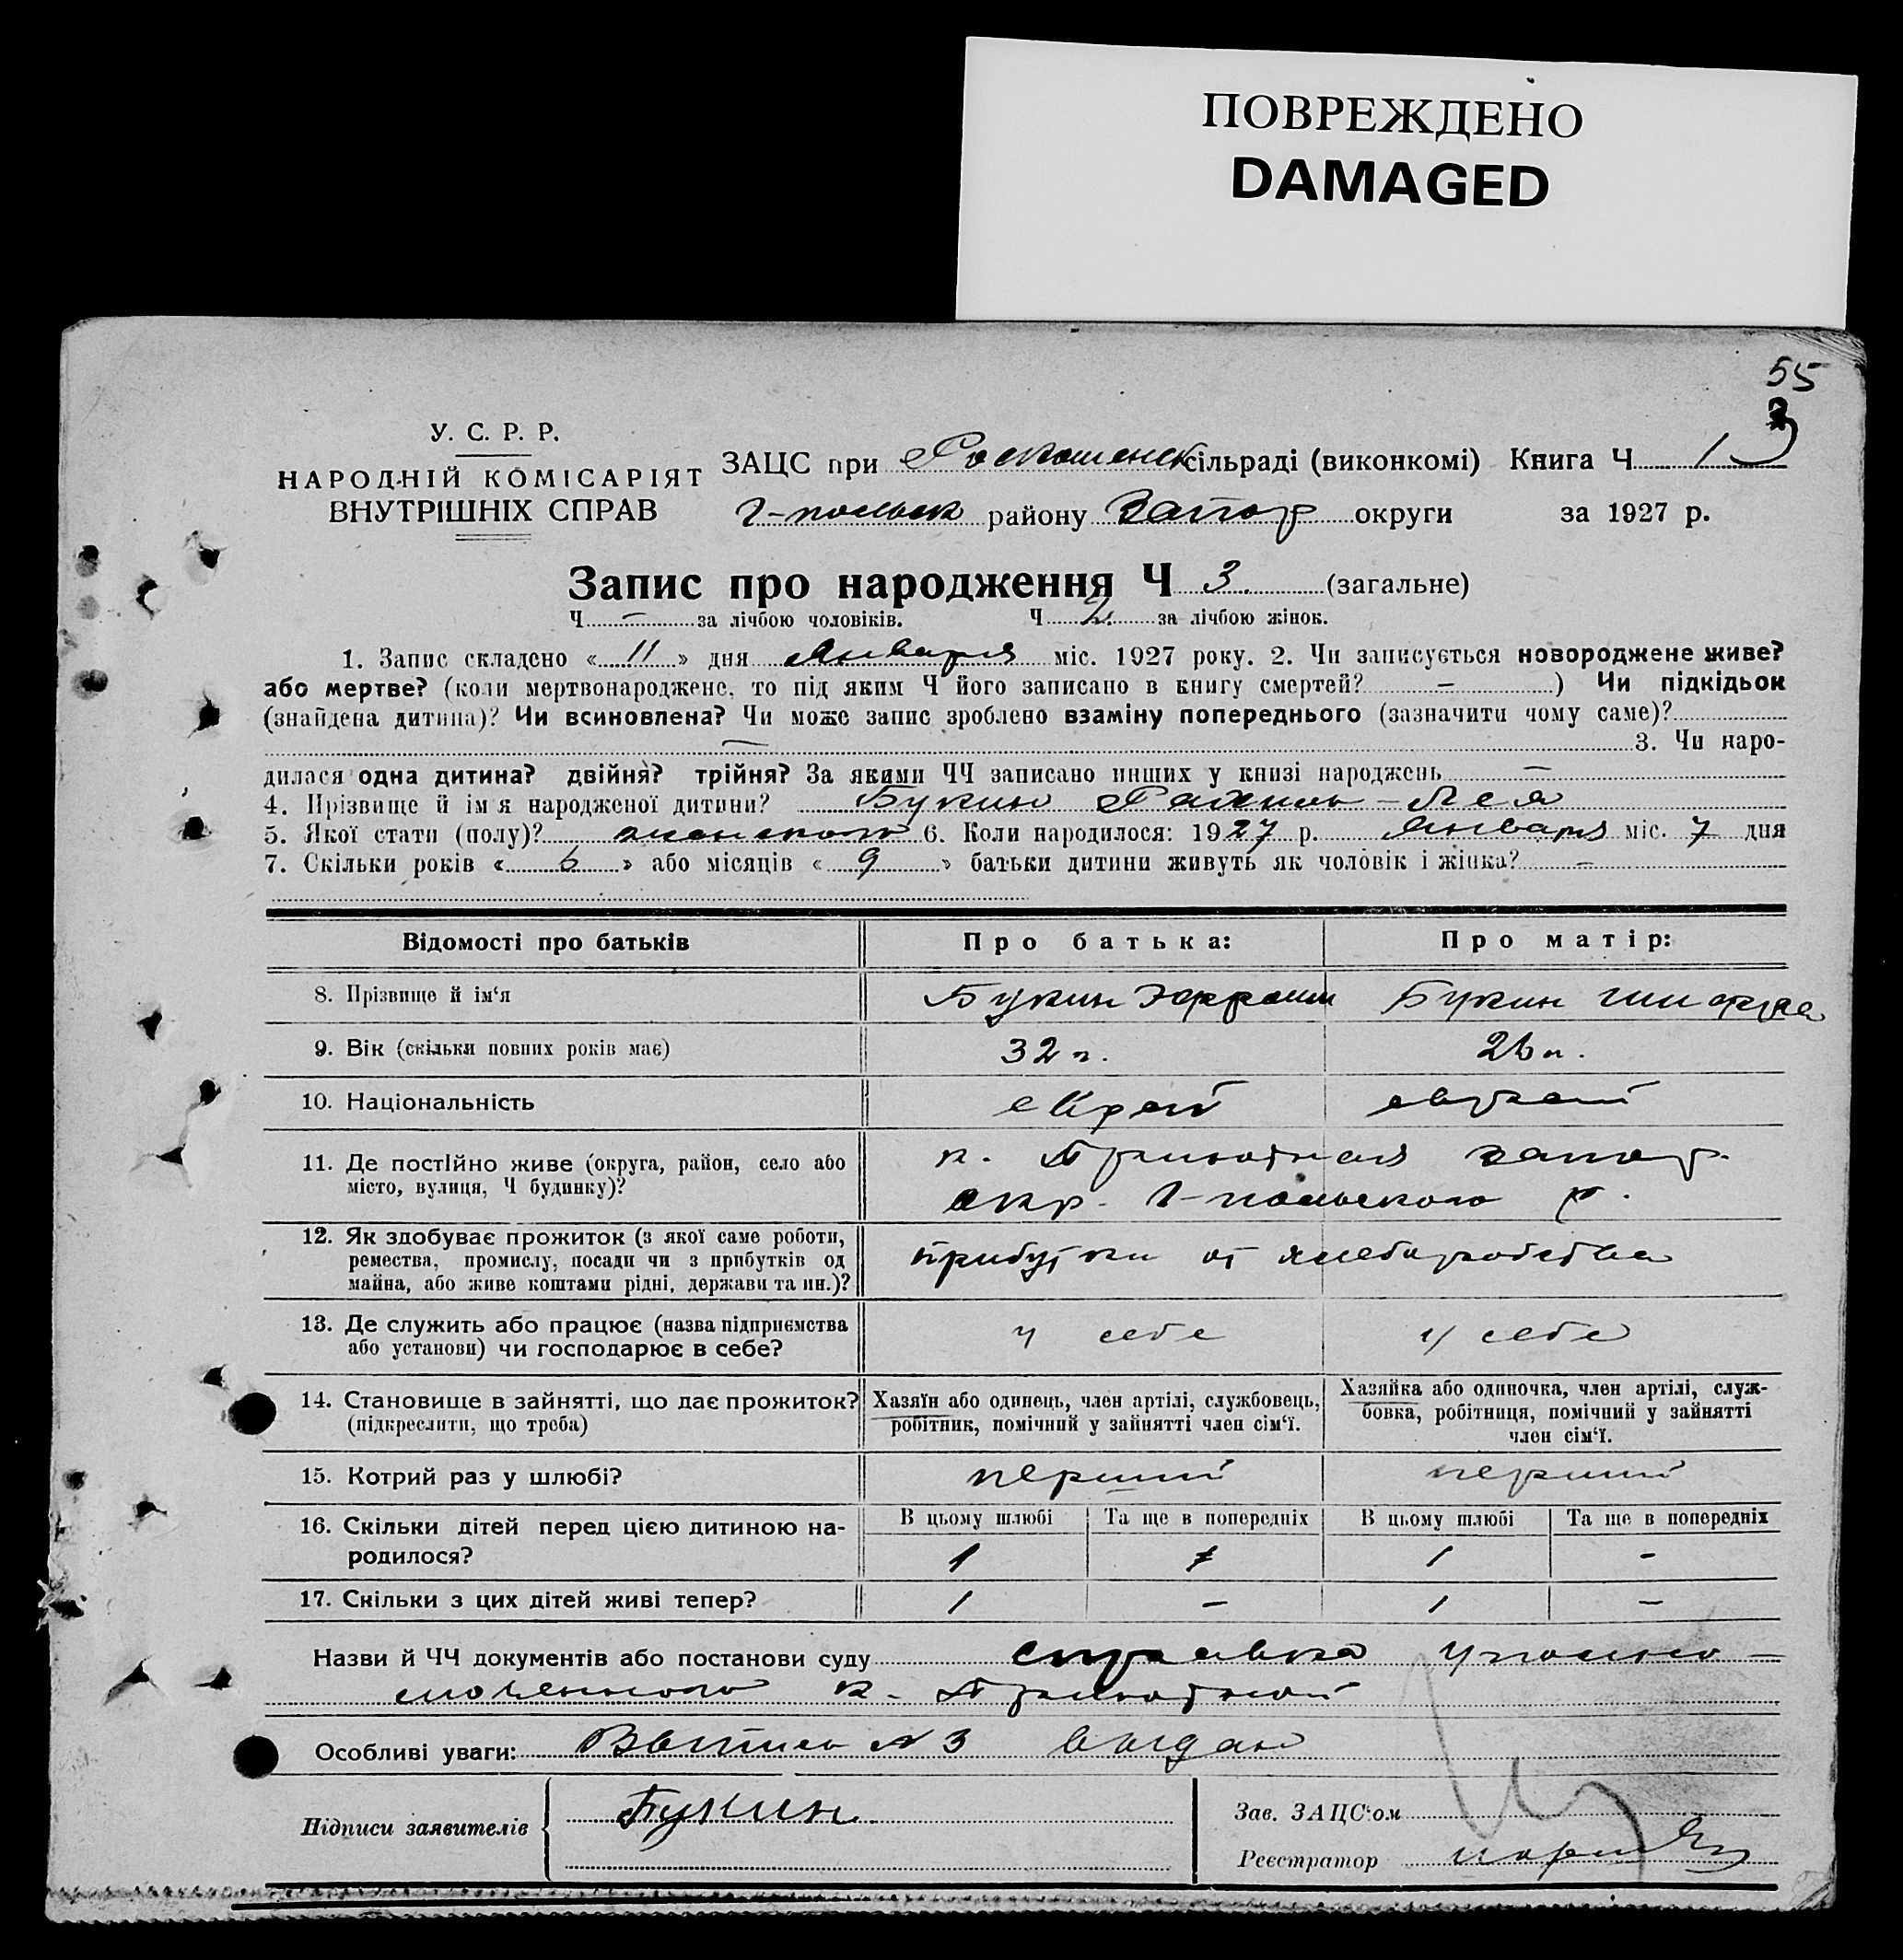 ПОВРЕЖДЕНО
DAMAGED
55
У. С. Р. Р.
НАРОДНІЙ КОМІСАРІЯТ
ВНУТРІШНІХ СПРАВ
ЗАЦС при Роскошенск сільраді (виконкомі) Книга Ч 1
Г-польск району Запор округи за 1927 р.
Запис про народження Ч 3 (загальне)
Ч – за лічбою чоловіків. Ч 2 за лічбою жінок.
1. Запис складено « 11 » дня Января міс. 1927 року. 2. Чи записується новороджене живе?
або мертве? (коли мертвонароджене, то під яким Ч його записано в книгу смертей? – ) Чи підкідьок
(знайдена дитина)? Чи всиновлена? Чи може запис зроблено взаміну попереднього (зазначити чому саме)?
– 3. Чи наро-
дилася одна дитина? двійня? трійня? За якими ЧЧ записано инших у книзі народжень –
4. Прізвище й імя народженої дитини? Букин Рахиль-Лея
5. Якої стати (полу)? женского 6. Коли народилося: 1927 р. Января міс. 7 дня
7. Скільки років « 6 » або місяців « 9 » батьки дитини живуть як чоловік і жінка? –
Відомості про батьків Про батька: Про матір:
8. Прізвище й ім‘я Букин Эфроим Букин Шифра
9. Вік (скільки повних років має) 32 л. 26 л.
10. Національність еврей еврей
11. Де постійно живе (округа, район, село або
місто, вулиця, Ч будинку)?
к. Приютная запор.
окр. Г-польского р.
12. Як здобуває прожиток (з якої саме роботи,
ремества, промислу, посади чи з прибутків од
майна, або живе коштами рідні, держави та ин.)?
прибутки от хлеборобства
13. Де служить або працює (назва підприємства
або установи) чи господарює в себе?
у себе у себе
14. Становище в зайнятті, що дає прожиток?
(підкреслити, що треба)
Хазяїн або одинець, член артілі, службовець,
робітник, помічний у зайнятті член сім‘ї.
Хазяйка або одиночка, член артілі, служ-
бовка, робітниця, помічний у зайнятті
член сім‘ї.
15. Котрий раз у шлюбі? перший перший
16. Скільки дітей перед цією дитиною на-
родилося?
В цьому шлюбі Та ще в попередніх В цьому шлюбі Та ще в попередніх
1 1 –
17. Скільки з цих дітей живі тепер? 1 – 1 –
Назви й ЧЧ документів або постанови суду справка уполно-
моченного к. Приютной
Особливі уваги: Выпись №3 выдан
Підписи заявителів Букин
Зав. ЗАЦС‘ом
Реєстратор